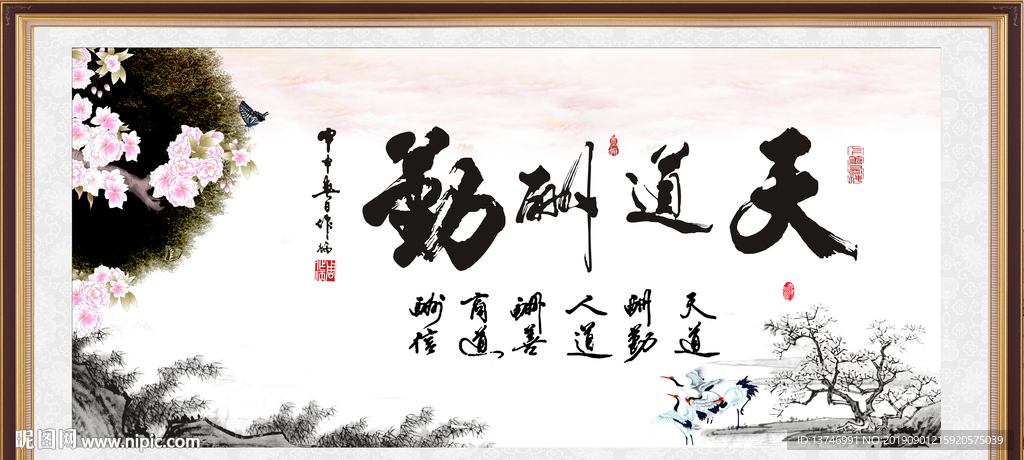 天道酬勤
天道
酬勤
人道
酬善
商道
酬信
甲申春日作
昵图网 www.nipic.com
ID:13746991 NO:20190901215920575039